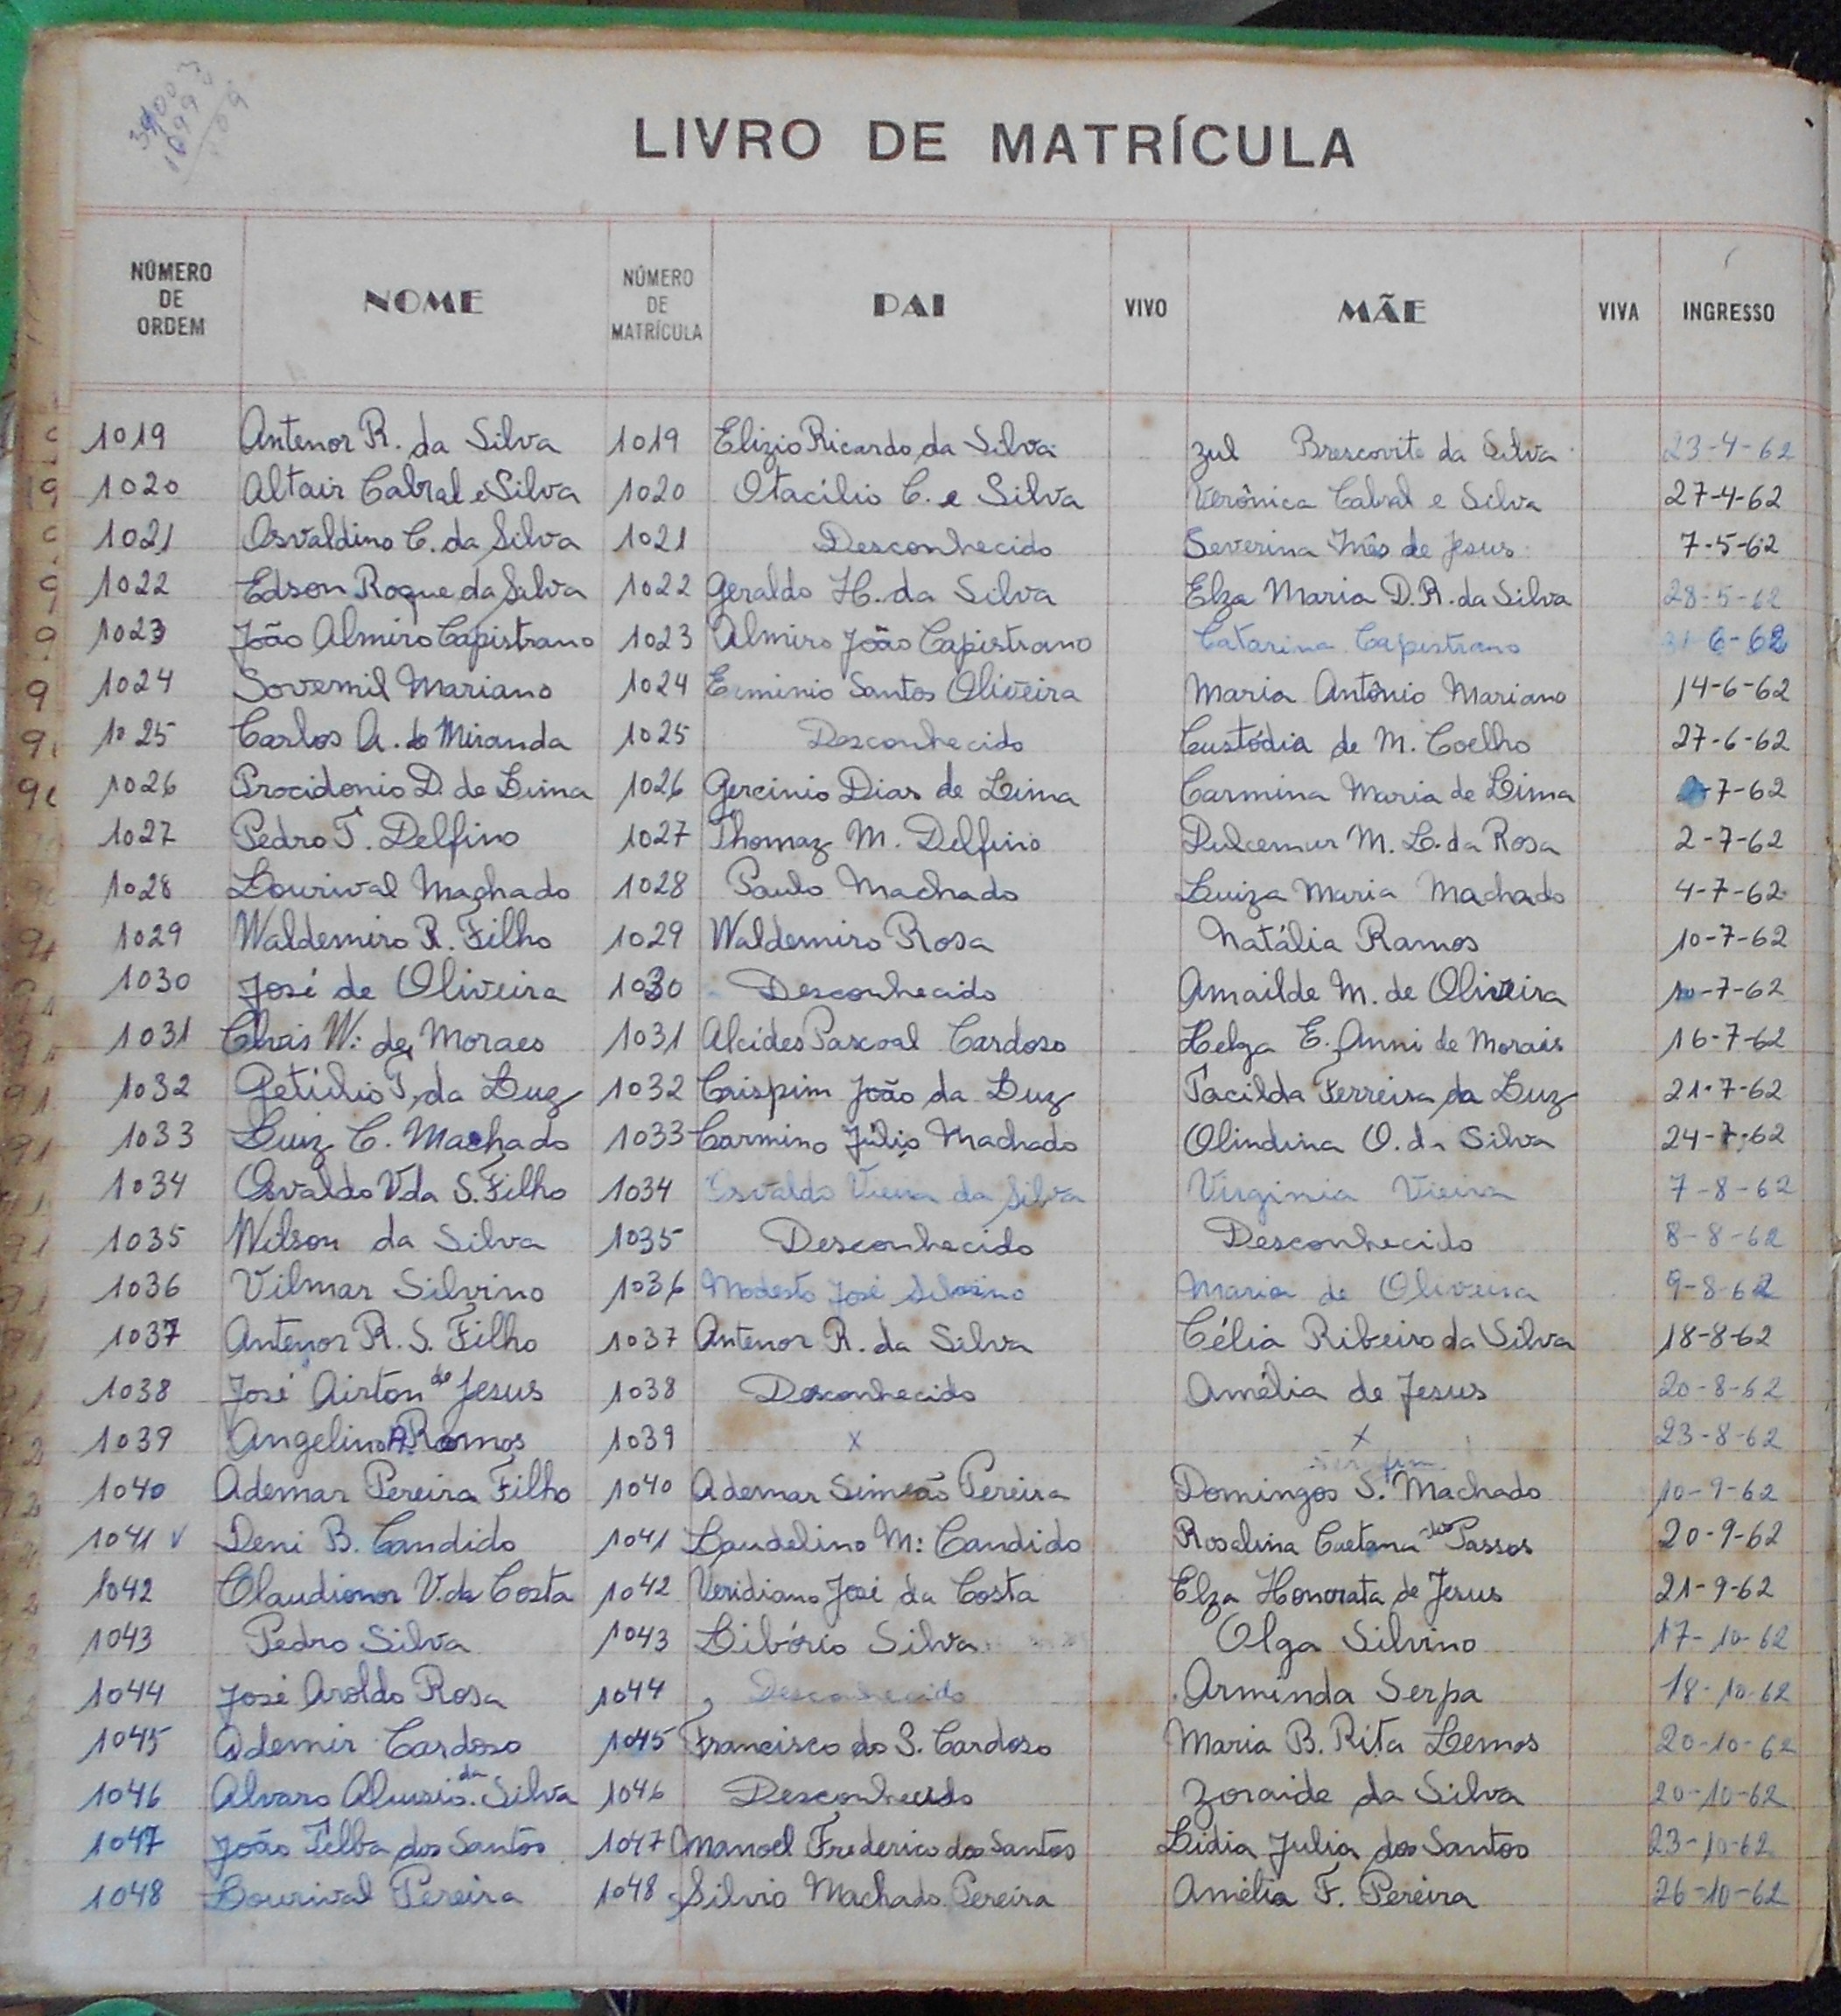 LIVRO DE MATRÍCULA
NÚMERO DE ORDEM NOME NÚMERO DE MATRÍCULA PAI VIVO MÃE VIVA INGRESSO
1019 Antenor R. da Silva 1019 Elizio Ricardo da Silva Zul Brescovite da Silva 23-4-62
1020 Altair Cabral e Silva 1020 Otacílio C. e Silva Verônica Cabral e Silva 27-4-62
1021 Osvaldino C. da Silva 1021 Desconhecido Severina Inês de Jesus 7-5-62
1022 Edson Roque da Silva 1022 Geraldo H. da Silva Elza Maria D.R. da Silva 28-5-62
1023 João Almiro Capistrano 1023 Almiro João Capistrano Catarina Capistrano 6-62
1024 Sovernil Mariano 1024 Erminio Santos Oliveira Maria Antônio Mariano 14-6-62
1025 Carlos A. de Miranda 1025 Desconhecido Custódia de M. Coelho 27-6-62
1026 Procidonio D. de Lima 1026 Gercinio Dias de Lima Carmina Maria de Lima 7-62
1027 Pedro T. Delfino 1027 Thomaz M. Delfino Dulcemar M. L. da Rosa 2-7-62
1028 Lourival Machado 1028 Paulo Machado Luiza Maria Machado 4-7-62
1029 Waldemiro R. Filho 1029 Waldemiro Rosa Natália Ramos 10-7-62
1030 José de Oliveira 1030 Desconhecido Amailde M. de Oliveira 10-7-62
1031 W. de Moraes 1031 Alcides Pascoal Cardoso Helga E. Anni de Morais 16-7-62
1032 Getúlio T. da Luz 1032 Crispim João da Luz Tacilda Ferreira da Luz 21-7-62
1033 Luiz C. Machado 1033 Carmino Júlio Machado Olindina O. da Silva 24-7-62
1034 Osvaldo V. da S. Filho 1034 Osvaldo Vieira da Silva Virginia Vieira 7-8-62
1035 Wilson da Silva 1035 Desconhecido Desconhecido 8-8-62
1036 Vilmar Silvino 1036 Modesto José Silvino Maria de Oliveira 9-8-62
1037 Antenor R. S. Filho 1037 Antenor R. da Silva Célia Ribeiro da Silva 18-8-62
1038 José Airton de Jesus 1038 Desconhecido Amélia de Jesus 20-8-62
1039 Angelino A. Ramos 1039 x x 23-8-62
1040 Ademar Pereira Filho 1040 Ademar Simeão Pereira Domingos S. Machado 10-9-62
1041 v Deni B. Candido 1041 Laudelino M: Candido Rosalina Caetana dos Passos 20-9-62
1042 Claudionor V. da Costa 1042 Veridiano José da Costa Elza Honorata de Jesus 21-9-62
1043 Pedro Silva 1043 Libório Silva Olga Silvino 17-10-62
1044 José Aroldo Rosa 1044 Desconhecido Arminda Serpa 18-10-62
1045 Ademir Cardoso 1045 Francisco do S. Cardoso Maria B. Rita Lemos 20-10-62
1046 Alvaro Aluisio da Silva 1046 Desconhecido Zoraide da Silva 20-10-62
1047 João Telba dos Santos 1047 Manoel Frederico dos Santos Lidia Julia dos Santos 23-10-62
1048 Lourival Pereira 1048 Silvio Machado Pereira Amélia F. Pereira 26-10-62